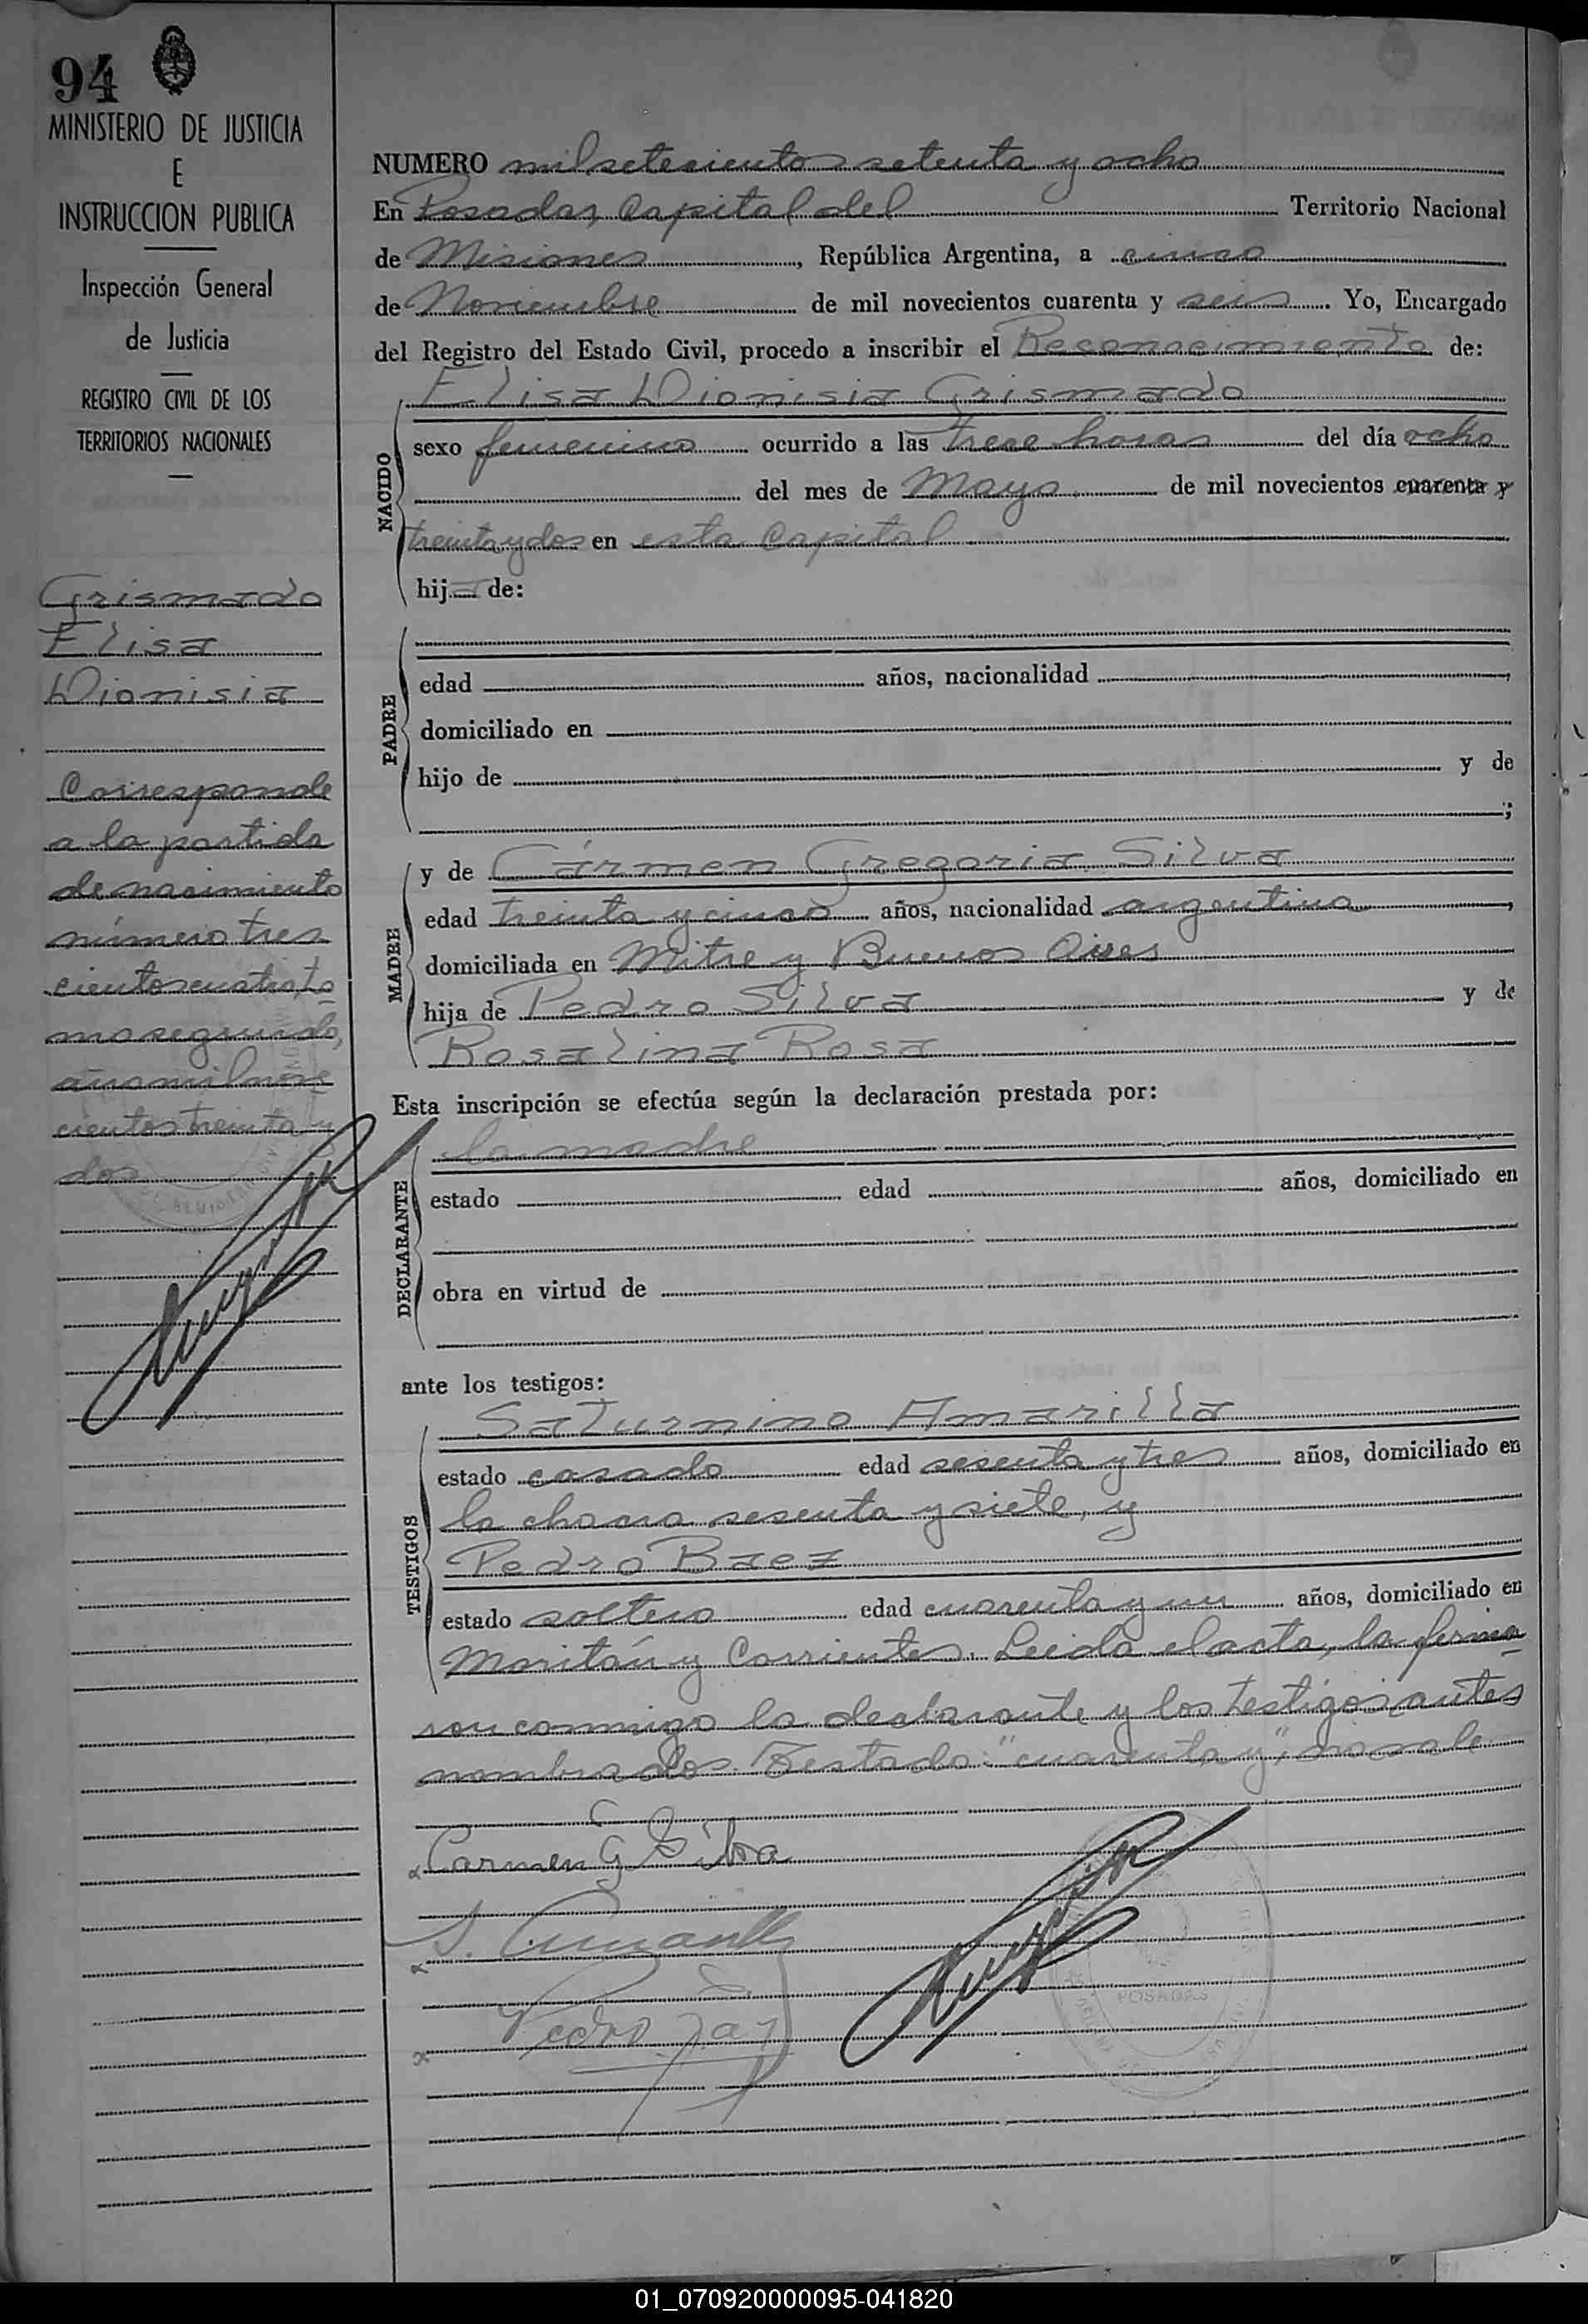 94
MINISTERIO DE JUSTICIA
E
INSTRUCCION PUBLICA
Inspección General
de Justicia
REGISTRO CIVIL DE LOS
TERRITORIOS NACIONALES
Grismado
Elisa
Dionisia
Corresponde
a la partida
de nacimiento
número tres
cientos cuatro, to
mo segundo,
año mil nove
cientos treinta y
dos
NUMERO mil setecientos setenta y ocho
En Posadas, Capital del Territorio Nacional
de Misiones, República Argentina, a cinco
de Noviembre de mil novecientos cuarenta y seis. Yo, Encargado
del Registro del Estado Civil, procedo a inscribir el Reconocimiento de:
Elisa Dionisia Grismado
NACIDO
sexo femenino ocurrido a las trece horas del día ocho
del mes de Mayo de mil novecientos cuarenta y
treinta y dos en esta Capital
hija de:
PADRE
edad años, nacionalidad ,
domiciliado en
hijo de y de
;
MADRE
y de Cármen Gregoria Silva
edad treinta y cinco años, nacionalidad argentina,
domiciliada en Mitre y Buenos Aires
hija de Pedro Silva y de
Rosalina Rosa
Esta inscripción se efectúa según la declaración prestada por:
la madre
DECLARANTE
estado edad años, domiciliado en
obra en virtud de
ante los testigos:
Saturnino Amarilla
TESTIGOS
estado casado edad sesenta y tres años, domiciliado en
la chacra sesenta y siete, y
Pedro Baez
estado soltero edad cuarenta y un años, domiciliado en
Moritán y Corrientes. Leida el acta, la firma
ron conmigo la declarante y los testigos antes
nombrados. Testado: "cuarenta y", no vale.
Carmen G Silva
S. Amarilla
Pedro
POSADAS
01_070920000095-041820